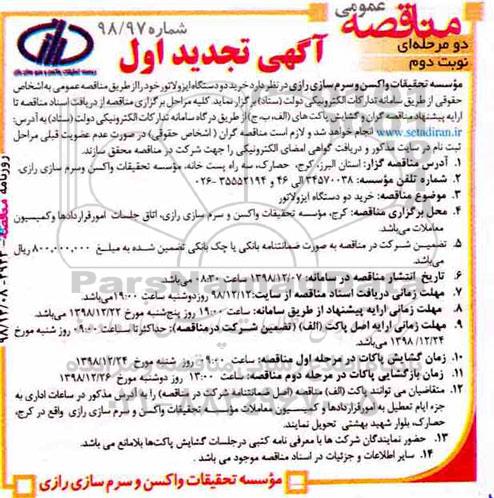 مناقصه عمومی
دو مرحله‌ای
نوبت دوم
شماره ۹۸/۹۷
آگهی تجدید اول
موسسه تحقیقات واکسن و سرم سازی رازی
مؤسسه تحقیقات واکسن و سرم سازی رازی در نظر دارد خرید دو دستگاه ایزولاتور خود را از طریق مناقصه عمومی به اشخاص
حقوقی از طریق سامانه تدارکات الکترونیکی دولت (ستاد) برگزار نماید. کلیه مراحل برگزاری مناقصه از دریافت اسناد مناقصه تا
ارایه پیشنهاد مناقصه گران و گشایش پاکت های (الف، ب، ج) از طریق درگاه سامانه تدارکات الکترونیکی دولت (ستاد) به آدرس:
www.setadiran.ir انجام خواهد شد و لازم است مناقصه گران (اشخاص حقوقی) در صورت عدم عضویت قبلی مراحل
ثبت نام در سایت مذکور و دریافت گواهی امضای الکترونیکی را جهت شرکت در مناقصه محقق سازند.
۱. آدرس مناقصه گزار: استان البرز، کرج، حصارک، سه راه پست خانه، مؤسسه تحقیقات واکسن و سرم سازی رازی.
۲. شماره تلفن مؤسسه: ۳۴۵۷۰۰۳۸ الی ۴۶ و ۳۵۵۵۲۱۹۴ -۰۲۶
۳. موضوع مناقصه: خرید دو دستگاه ایزولاتور
۴. محل برگزاری مناقصه: کرج، مؤسسه تحقیقات واکسن و سرم سازی رازی، اتاق جلسات امور قراردادها و کمیسیون
معاملات می‌باشد.
۵. تضمین شرکت در مناقصه به صورت ضمانتنامه بانکی یا چک بانکی تضمین شده به مبلغ ۸۰۰,۰۰۰,۰۰۰ ریال
می‌باشد.
۶. تاریخ انتشار مناقصه در سامانه: ۱۳۹۸/۱۲/۰۷ ساعت ۰۸:۳۰ می‌باشد.
۷. مهلت زمانی دریافت اسناد مناقصه از سایت: ۹۸/۱۲/۱۲ روز دوشنبه ساعت ۱۹:۰۰ می‌باشد.
۸. مهلت زمانی ارایه پیشنهاد از طریق سامانه: ساعت ۱۹:۰۰ روز پنج‌شنبه مورخ ۱۳۹۸/۱۲/۲۲ می‌باشد.
۹. مهلت زمانی ارایه اصل پاکت (الف) (تضمین شرکت در مناقصه): حداکثر تا ساعت ۰۹:۰۰ روز شنبه مورخ
۱۳۹۸/۱۲/۲۴ می‌باشد.
۱۰. زمان گشایش پاکات در مرحله اول مناقصه: ساعت ۰۹:۰۰ روز شنبه مورخ ۱۳۹۸/۱۲/۲۴
۱۱. زمان بازگشایی پاکات در مرحله دوم مناقصه: ساعت ۱۳:۰۰ روز دوشنبه مورخ ۱۳۹۸/۱۲/۲۶
۱۲. متقاضیان می توانند، پاکت (الف) مناقصه (اصل ضمانتنامه شرکت در مناقصه) را به آدرس مذکور در ساعات اداری به
جزء ایام تعطیل به امور قراردادها و کمیسیون معاملات مؤسسه تحقیقات واکسن و سرم سازی رازی واقع در کرج،
حصارک، بلوار شهید بهشتی تحویل نمایند.
۱۳. حضور نمایندگان شرکت ها با معرفی نامه کتبی در جلسات گشایش پاکت‌ها بلامانع می باشد.
۱۴. سایر اطلاعات و جزئیات در اسناد مناقصه موجود می باشد.
مؤسسه تحقیقات واکسن و سرم سازی رازی
ParsNamadData